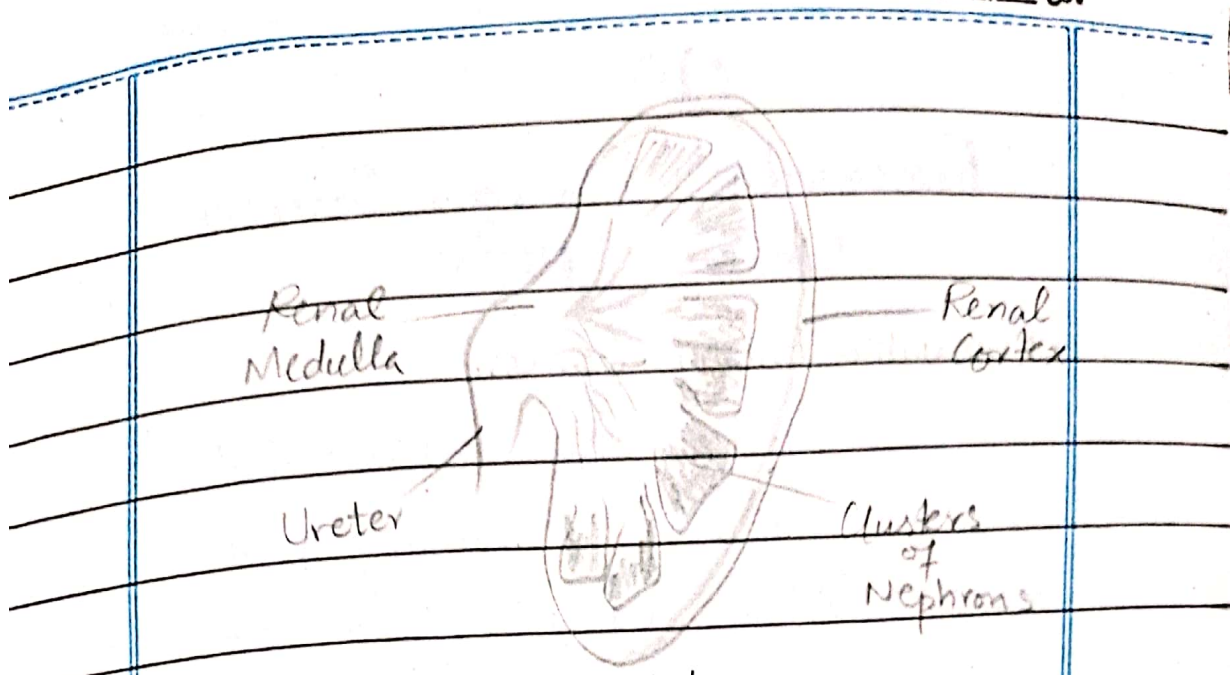 Renal
Medulla
Renal
Cortex
Ureter
Clusters
of
Nephrons